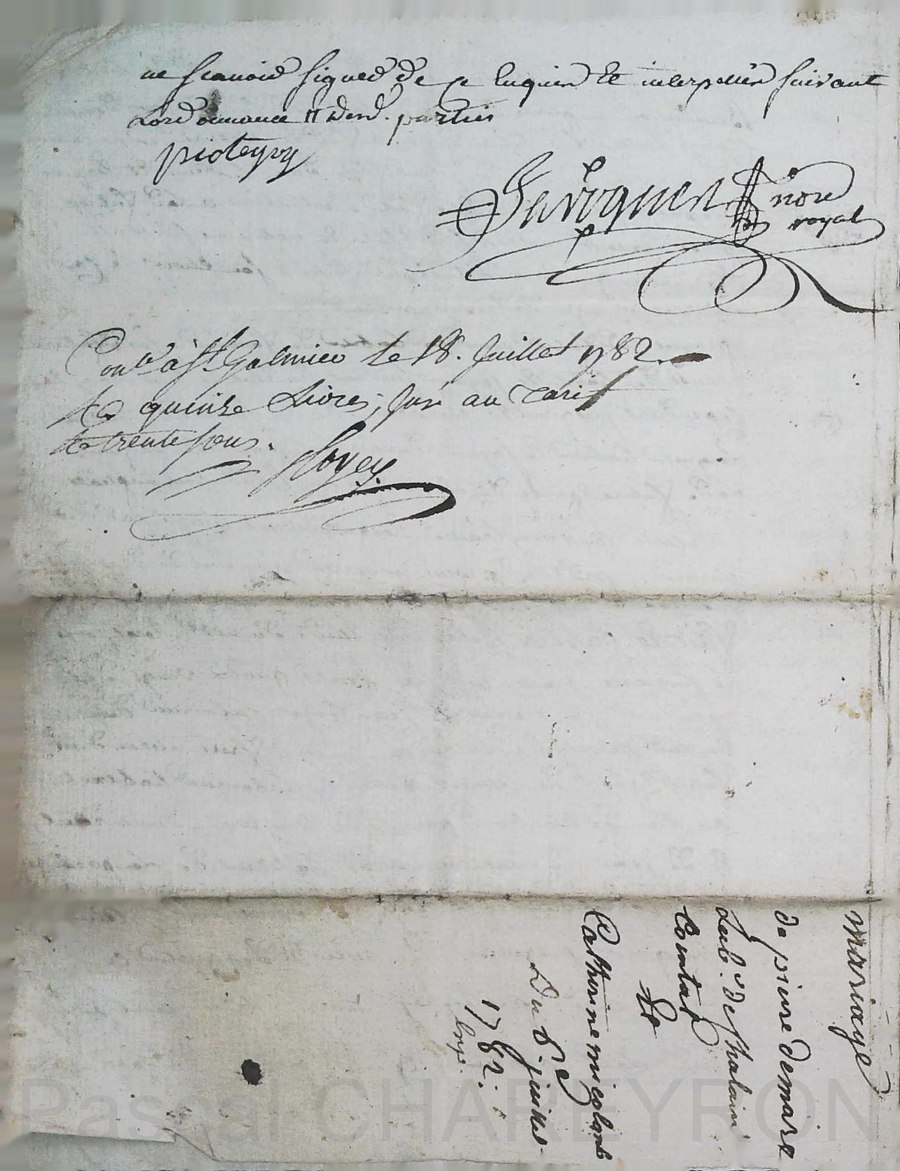 ne scavoir signer de ce enquis et interpellés suivant
Lordonnance # Desd. parties
notre
royal
Con.lé à St Galmier le 18. Juillet 1782.
quinse Livres, sur au Tarif
trente sous.
mariage
de pierre demare
Lab. de Chalain
Comtal
Et
Catherine
Du 6. juillet
1782.
Pascal CHAPEYRON